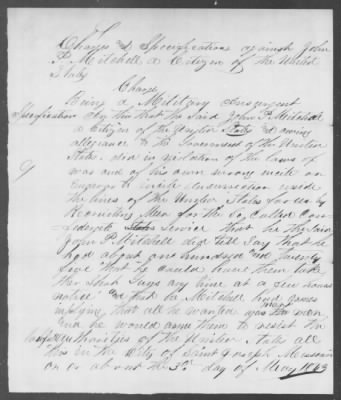 Charges and Specifications against John
P. Mitchell a Citizen of the United
States
Charge
Being a Military Insurgent
Specification In this that he the said John P. Mitchell
a Citizen of the United States and owing
allegiance to the Government of the United
States did in violation of the laws of
war and of his own wrong incite an
to incite insurrection inside
the lines of the United States forces by
Recruiting Men for the So Called Con
federate States Service that he the said
John P Mitchell did tell Say that he
had about one hundred and twenty
five that he could have them take
their at any time at a few hours
notice and that he Mitchell had
that all he wanted was the men
and he would them to resist the
authorities of the United States all
this in the City of Saint Joseph Missouri
on or about the 3rd day of May 1863